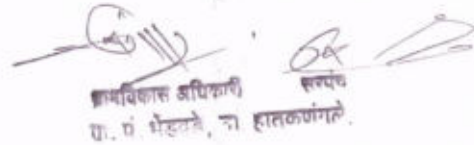 ग्रामविकास अधिकारी सरपंच
ग्रा. पं. भेंडवडे, ता हातकणंगले.